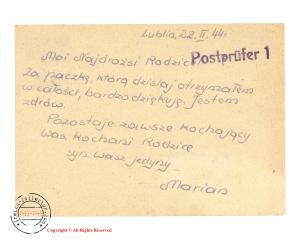 Lublin, 22. II. 44.
Moi Najdrożsi Rodzice
Postprüfer 1
Za paczkę, którą dzisiaj otrzymałem
w całości, bardzo dziękuję. Jestem
zdrów.
Pozostaję zawsze kochający
was kochani Rodzice
syn wasz jedyny –
– Marian
Copyright © All Rights Reserved